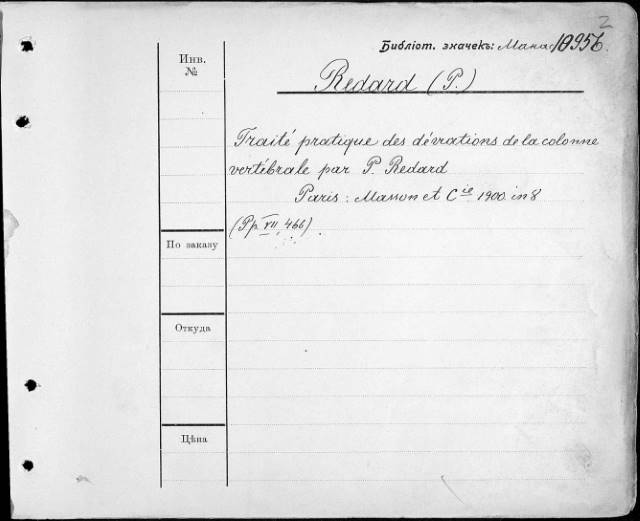 2
Библіот. значекъ: Мана 10956
Инв.
№
Redard (P.)
Traité pratique des déviations de la colonne
vertébrale par P. Redard
Paris : Masson et Cie 1900. in 8
(Pp. VII, 466).
По заказу
Откуда
Цѣна